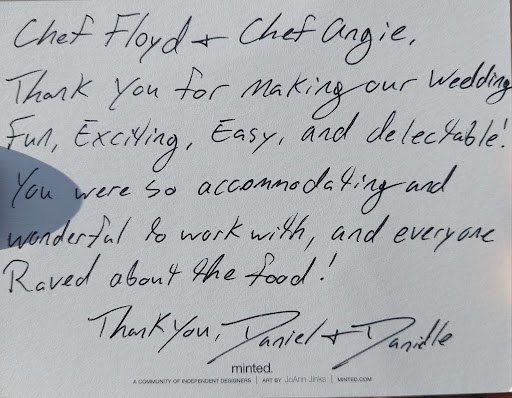 Chef Floyd + Chef Angie,
Thank You for making our Wedding
Fun, Exciting, Easy, and delectable!
You were so accommodating and
wonderful to work with, and everyone
Raved about the food!
Thank You, Daniel + Danielle
minted.
A COMMUNITY OF INDEPENDENT DESIGNERS | ART BY JoAnn Jinks | MINTED.COM